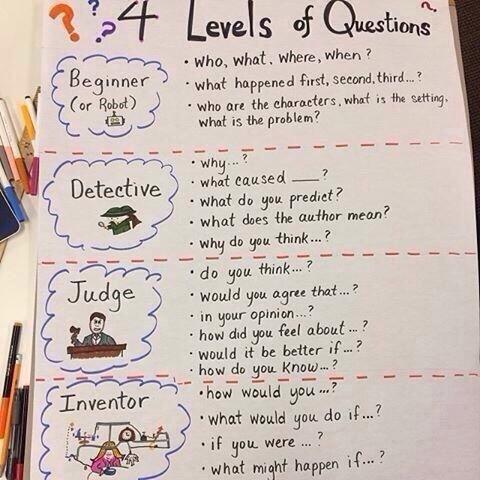 4 Levels of Questions
Beginner
(or Robot)
• who, what, where, when?
• what happened first, second, third...?
• who are the characters, what is the setting,
what is the problem?
Detective
• why...?
• what caused ____?
• what do you predict?
• what does the author mean?
• why do you think...?
Judge
• do you think...?
• would you agree that...?
• in your opinion...?
• how did you feel about ...?
• would it be better if...?
• how do you know...?
Inventor
• how would you ...?
• what would you do if...?
• if you were ... ?
• what might happen if...?